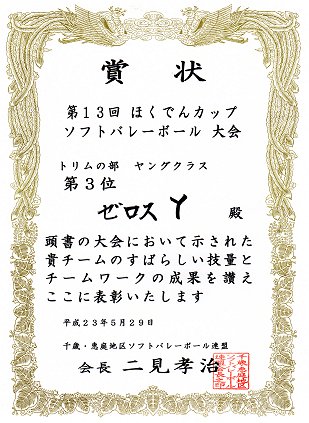 賞状
第13回 ほくでんカップ
ソフトバレーボール 大会
トリムの部 ヤングクラス
第3位
ゼロスY 殿
頭書の大会において示された
貴チームのすばらしい技量と
チームワークの成果を讃え
ここに表彰いたします
平成23年5月29日
千歳・恵庭地区ソフトバレーボール連盟
会長 二見孝治